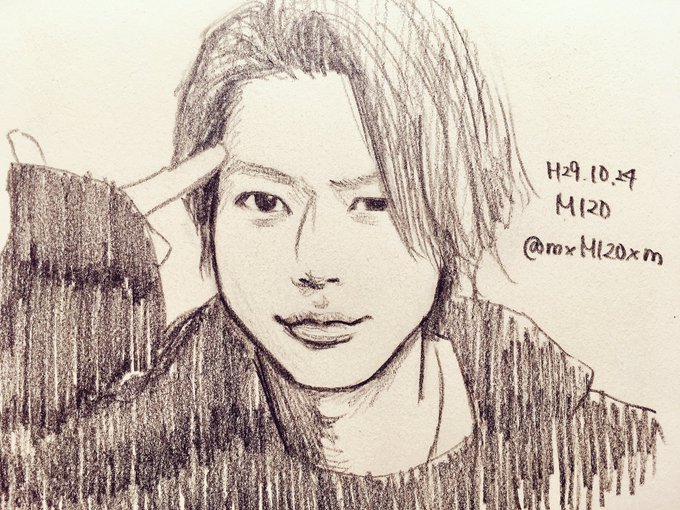 H29.10.24
M120
@mxM120xm